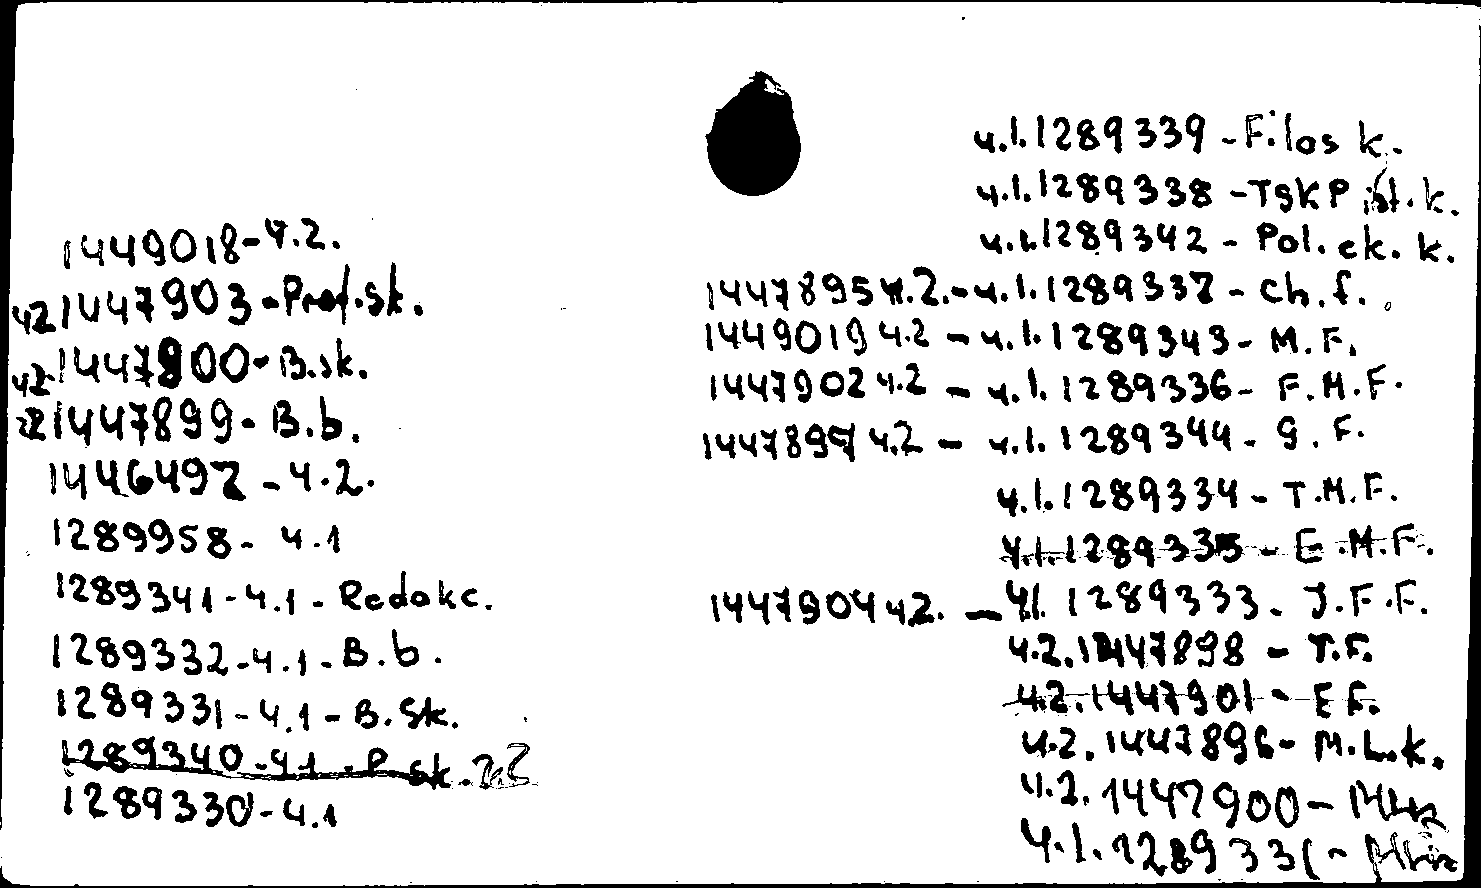 1449018-ч.2.
ч2 1447903-Prof.sk.
ч2 1447900-B.sk.
ч2 1447899-B.b.
1446497-ч.2.
1289958-ч.1
1289341-ч.1-Redakc.
1289332-ч.1-B.b.
1289331-ч.1-B.Sk.
1289340-ч.1-P sk.
1289330-ч.1
ч.1.1289339-Filos k.
ч.1.1289338-TSKP ist.k.
ч.1.1289342-Pol.ek.k.
1447895 ч.2.-ч.1.1289337-Ch.f.
1449019 ч.2-ч.1.1289343-M.F.
1447902 ч.2-ч.1.1289336-F.M.F.
1447897 ч.2-ч.1.1289344-G.F.
ч.1.1289334-T.M.F.
ч.1.1289335-E.M.F.
1447904 ч.2.-ч.1.1289333-J.F.F.
ч.2.1447898-T.F.
ч.2.1447901-E F.
ч.2.1447896-M.L.k.
ч.2.1447900-
ч.1.1289331-